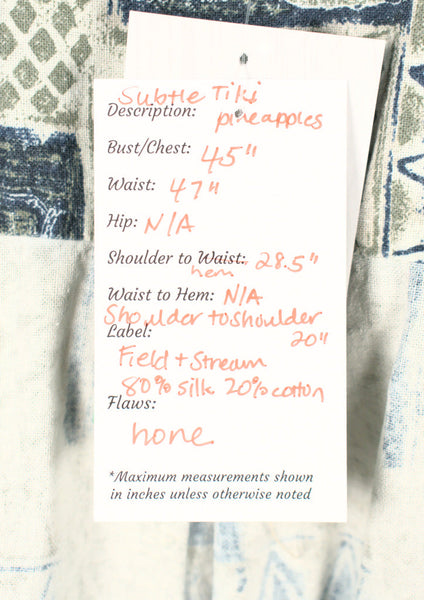 Subtle Tiki
Description: pineapples
Bust/Chest: 45"
Waist: 47"
Hip: N/A
Shoulder to Waist: 28.5"
hem
Waist to Hem: N/A
Shoulder to shoulder
Label: 20"
Field + Stream
80% silk 20% cotton
Flaws:
none
*Maximum measurements shown
in inches unless otherwise noted